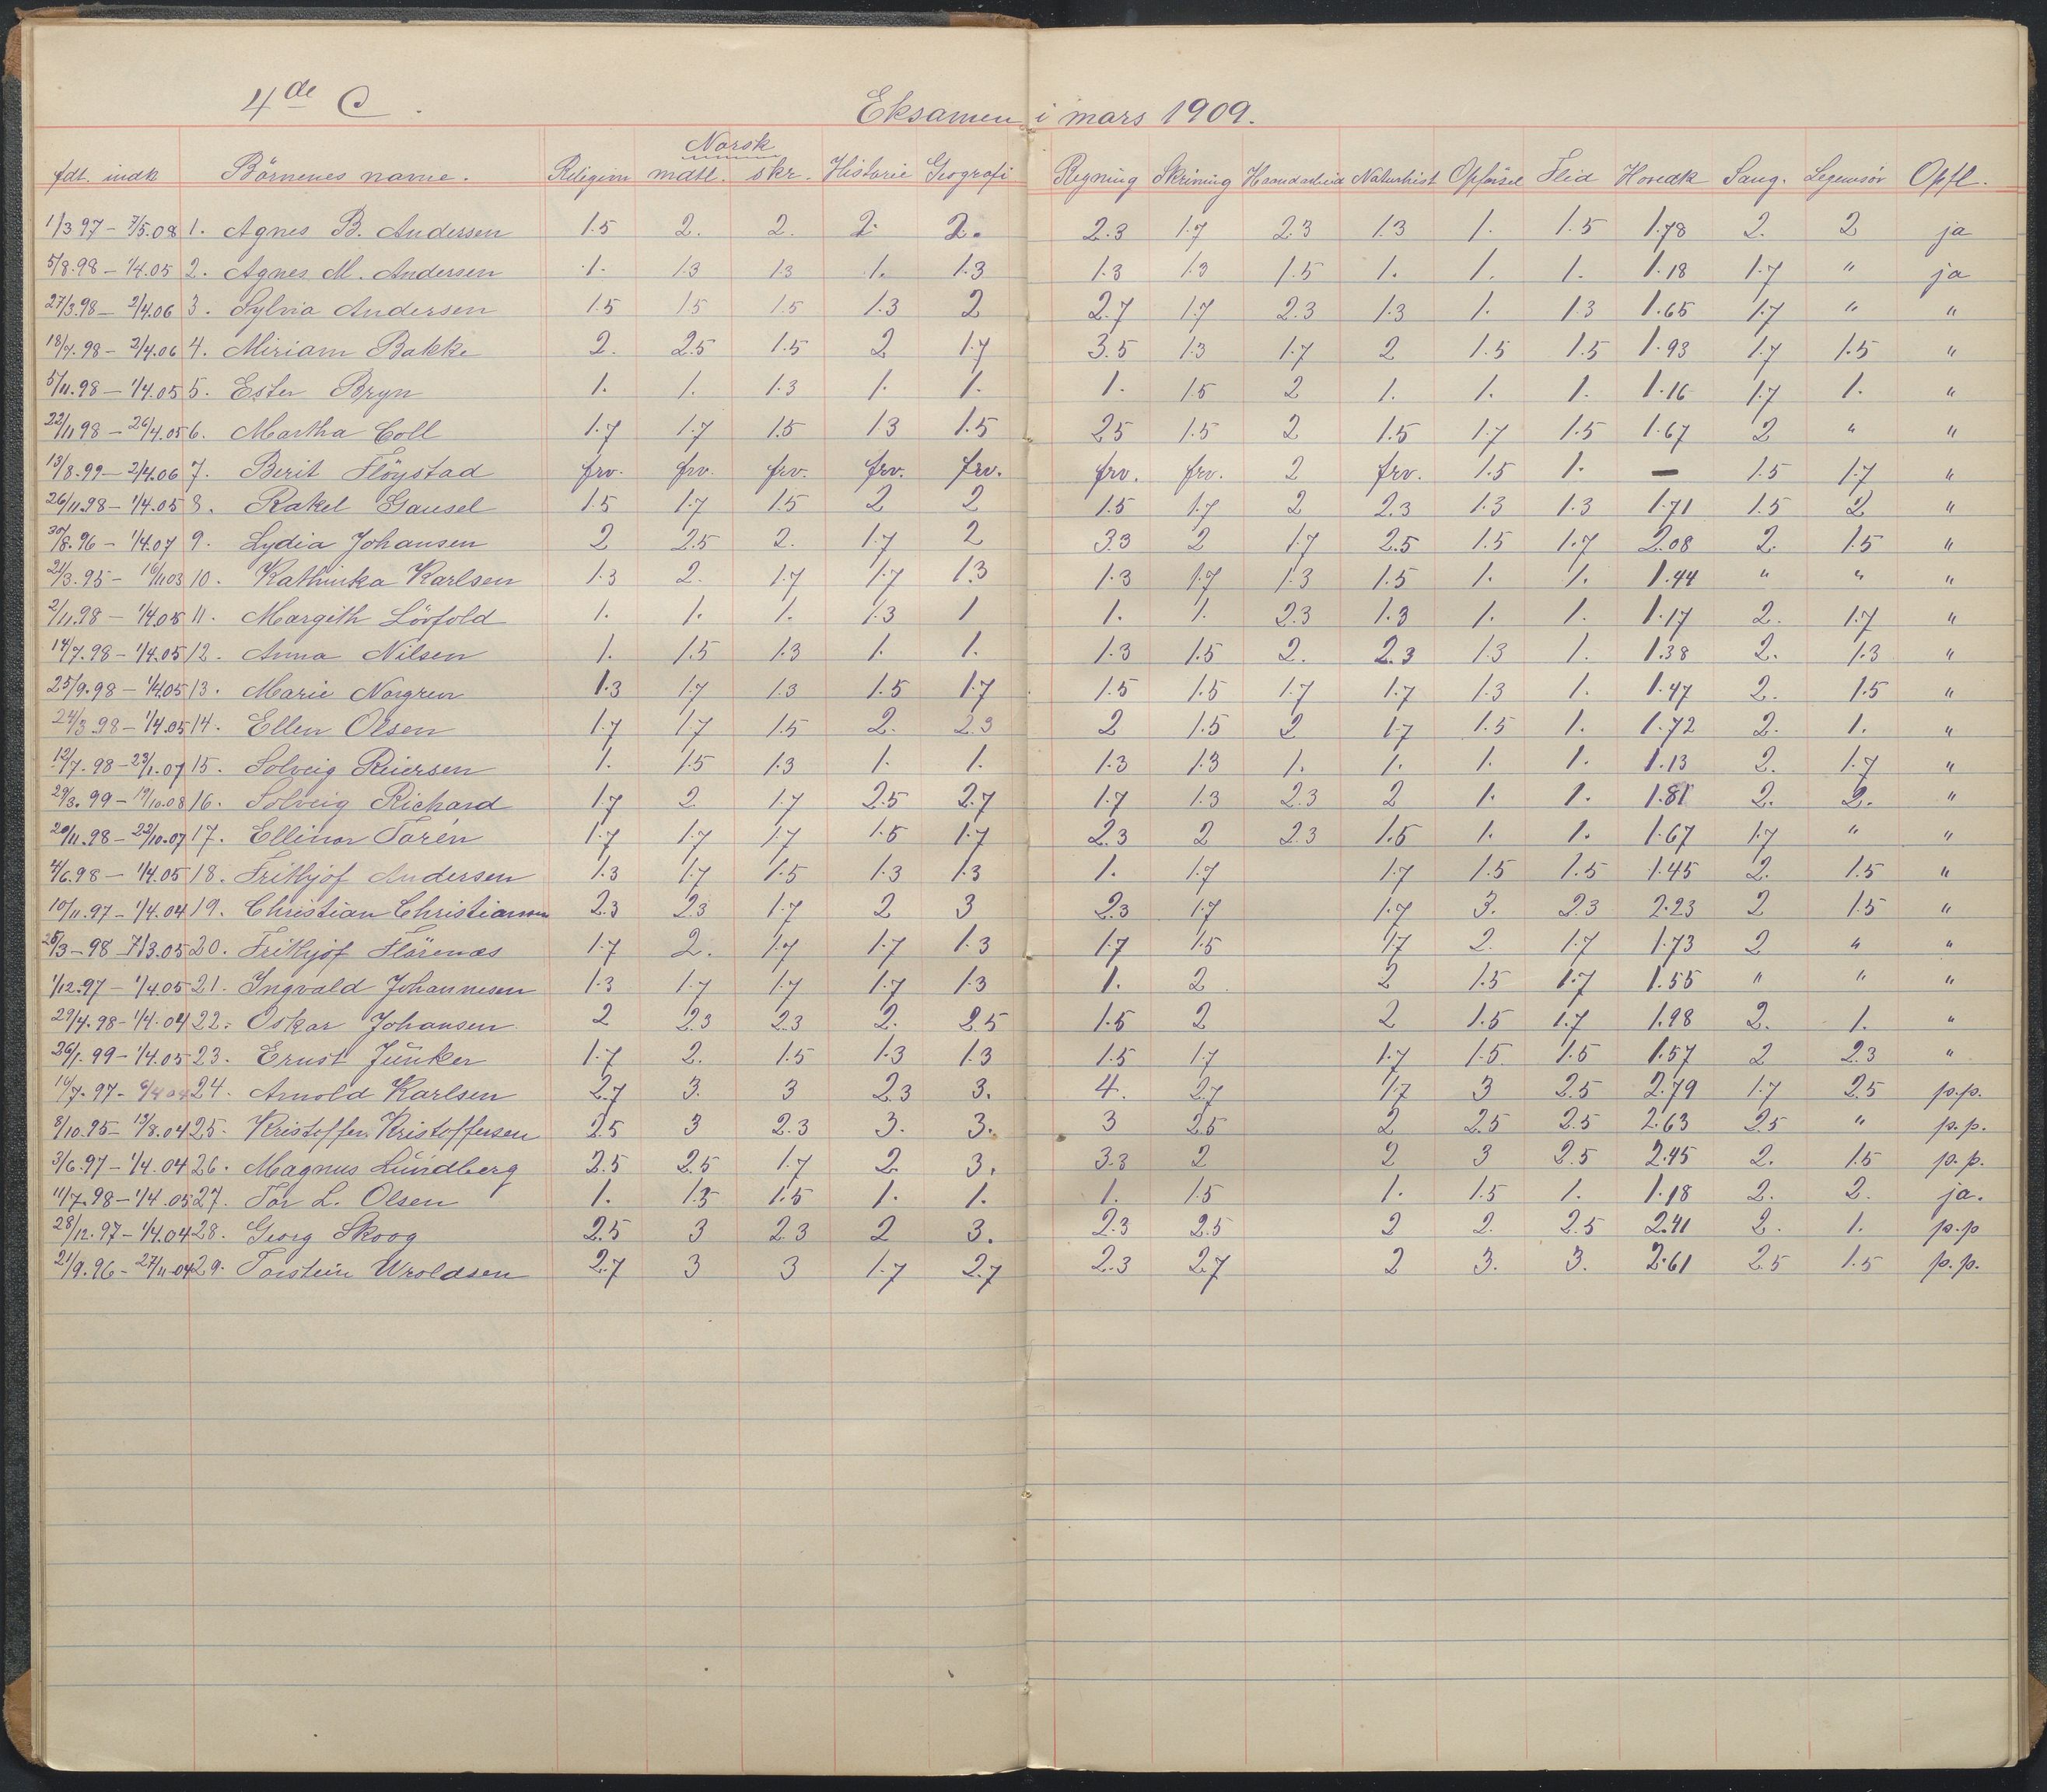 4de C. Eksamen i mars 1909.
Norsk
fdt. indk Börnenes navne. Religion mdtl. skr. Historie Geografi Regning Skrivning Haandarbeid Naturhist Opförsel Flid Hovedk Sang. Legemsöv Opfl.
1/3 97 - 7/5.08 1. Agnes B. Andersen 1.5 2. 2. 2. 2. 2.3 1.7 2.3 1.3 1. 1.5 1.78 2. 2 ja
5/8.98 - 1/4.05 2. Agnes M. Andersen 1. 1.3 1.3 1. 1.3 1.3 1.3 1.5 1. 1. 1. 1.18 1.7 " ja
27/3.98 - 2/4.06 3. Sylvia Andersen 1.5 1.5 1.5 1.3 2 2.7 1.7 2.3 1.3 1. 1.3 1.65 1.7 " "
18/7.98 - 2/4.06 4. Miriam Bakke 2. 2.5 1.5 2 1.7 3.5 1.3 1.7 2 1.5 1.5 1.93 1.7 1.5 "
5/11.98 - 1/4.05 5. Ester Bryn 1. 1. 1.3 1. 1. 1. 1.5 2 1. 1. 1. 1.16 1.7 1. "
22/11 98 - 26/4.05 6. Martha Coll 1.7 1.7 1.5 1.3 1.5 2.5 1.5 2 1.5 1.7 1.5 1.67 2 " "
13/8.99 - 2/4.06 7. Berit Flöystad frv. frv. frv. frv. frv. frv. frv. 2 frv. 1.5 1. — 1.5 1.7 "
26/11.98 - 1/4.05 8. Rakel Gausel 1.5 1.7 1.5 2 2 1.5 1.7 2 2.3 1.3 1.3 1.71 1.5 2 "
30/8.96 - 1/4.07 9. Lydia Johansen 2 2.5 2. 1.7 2 3.3 2 1.7 2.5 1.5 1.7 2.08 2. 1.5 "
21/3.95 - 16/11 03 10. Kathinka Karlsen 1.3 2. 1.7 1.7 1.3 1.3 1.7 1.3 1.5 1. 1. 1.44 " " "
2/11.98 - 1/4.05 11. Margith Lövfold 1. 1. 1. 1.3 1 1. 1. 2.3 1.3 1. 1. 1.17 2. 1.7 "
14/7.98 - 1/4.05 12. Anna Nilsen 1. 1.5 1.3 1. 1. 1.3 1.5 2. 2.3 1.3 1. 1.38 2. 1.3 "
25/9.98 - 1/4.05 13. Marie Norgren 1.3 1.7 1.3 1.5 1.7 1.5 1.5 1.7 1.7 1.3 1. 1.47 2. 1.5 "
24/3 98 - 1/4.05 14. Ellen Olsen 1.7 1.7 1.5 2. 2.3 2 1.5 2 1.7 1.5 1. 1.72 2. 1. "
12/7.98 - 23/1.07 15. Solveig Reiersen 1. 1.5 1.3 1. 1. 1.3 1.3 1. 1. 1. 1. 1.13 2. 1.7 "
29/3.99 - 19/10.08 16. Solveig Richard 1.7 2 1.7 2.5 2.7 1.7 1.3 2.3 2 1. 1. 1.81 2. 2. "
20/11.98 - 22/10.07 17. Ellinor Torén 1.7 1.7 1.7 1.5 1.7 2.3 2 2.3 1.5 1. 1. 1.67 1.7 " "
4/6.98 - 1/4.05 18. Frithjof Andersen 1.3 1.7 1.5 1.3 1.3 1. 1.7 1.7 1.5 1.5 1.45 2. 1.5 "
10/11.97 - 1/4.04 19. Christian Christiansen 2.3 2.3 1.7 2 3 2.3 1.7 1.7 3. 2.3 2.23 2 1.5 "
25/3 - 98 - 7/3.05 20. Frithjof Flörenæs 1.7 2. 1.7 1.7 1.3 1.7 1.5 1.7 2. 1.7 1.73 2 " "
1/12.97 - 1/4.05 21. Ingvald Johannesen 1.3 1.7 1.7 1.7 1.3 1. 2 2 1.5 1.7 1.55 " " "
29/4.98 - 1/4.04 22. Oskar Johansen 2 2.3 2.3 2. 2.5 1.5 2 2 1.5 1.7 1.98 2. 1. "
26/1.99 - 1/4.05 23. Ernst Junker 1.7 2. 1.5 1.3 1.3 1.5 1.7 1.7 1.5 1.5 1.57 2 2.3 "
10/7.97 - 24. Arnold Karlsen 2.7 3. 3 2.3 3. 4. 2.7 1.7 3 2.5 2.79 1.7 2.5 p.p.
8/10.95 - 12/8.04 25. Kristoffer Kristoffersen 2.5 3 2.3 3. 3. 3 2.5 2 2.5 2.5 2.63 2.5 " p.p.
3/6.97 - 1/4.04 26. Magnus Lundberg 2.5 2.5 1.7 2. 3. 3.3 2 2 3 2.5 2.45 2. 1.5 p.p.
11/7.98 - 1/4.05 27. Tor L. Olsen 1. 1.3 1.5 1. 1. 1. 1.5 1. 1.5 1. 1.18 2. 2. ja.
28/12.97 - 1/4.04 28. Georg Skoog 2.5 3 2.3 2 3. 2.3 2.5 2 2. 2.5 2.41 2. 1. p.p
21/9.96 - 27/11.04 29. Torstein Wroldsen 2.7 3 3 1.7 2.7 2.3 2.7 2 3. 3. 2.61 2.5 1.5 p.p.